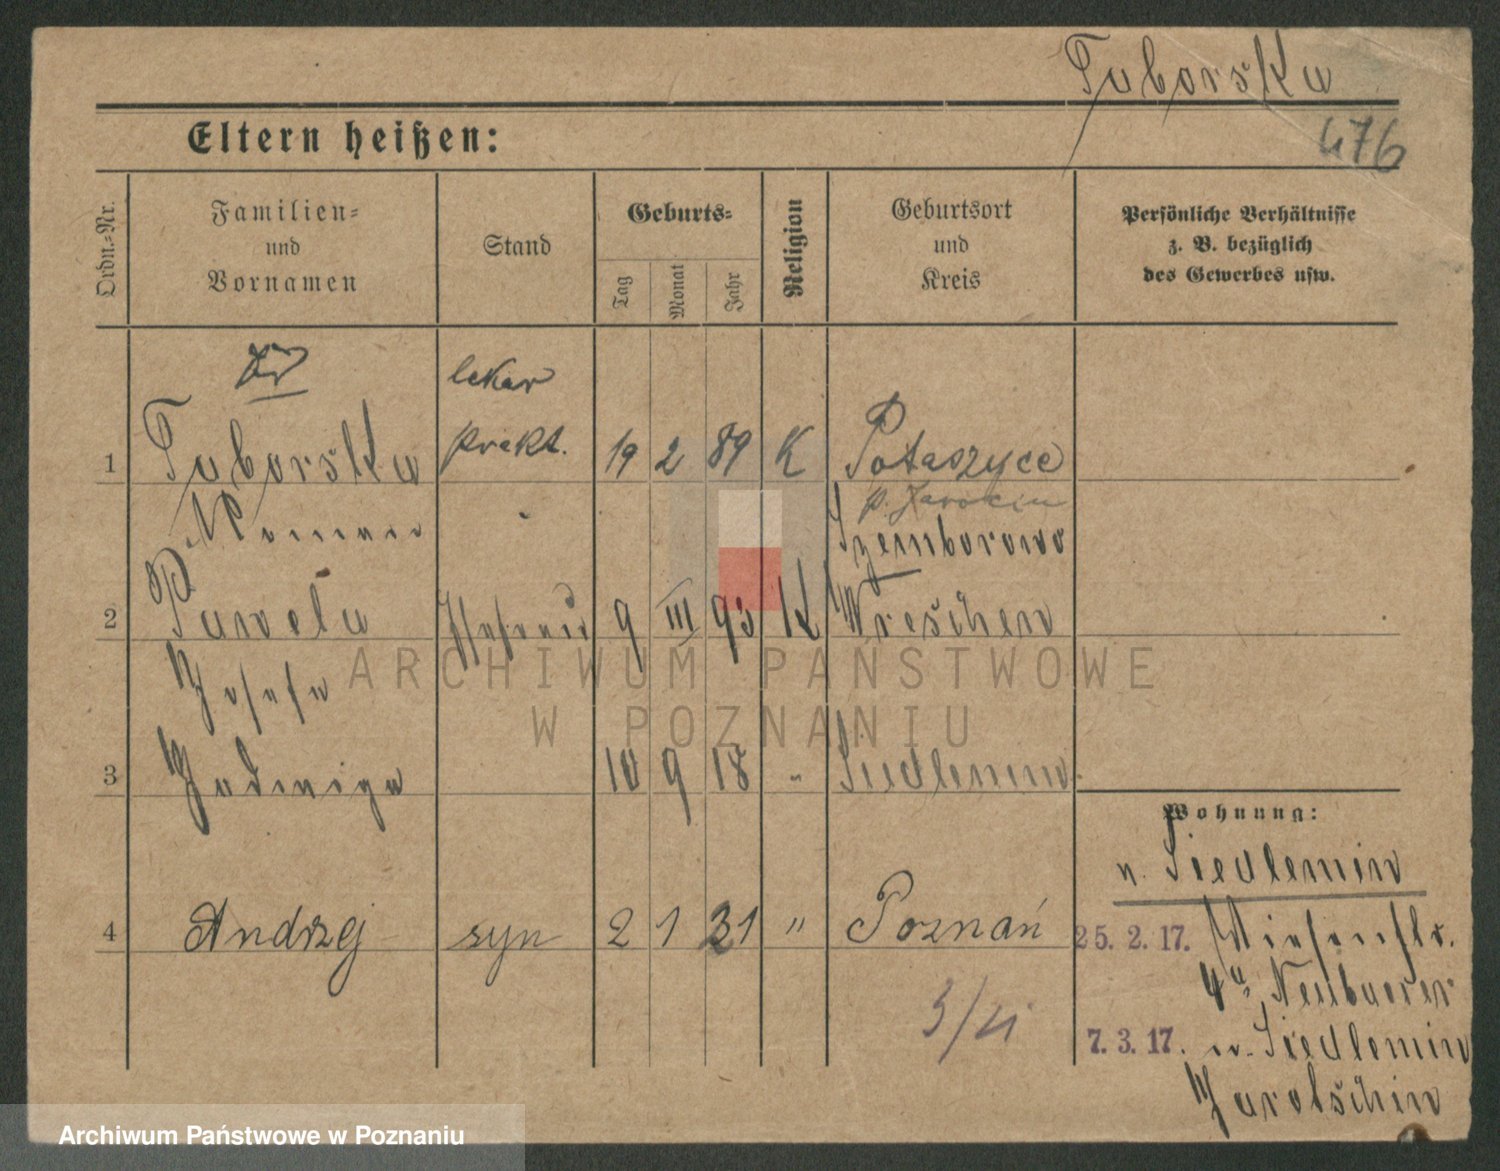 Taborska
476
Eltern heißen:
Ordn.-Nr.
Familien-
und
Vornamen
Stand
Geburts-
Tag
Monat
Jahr
Religion
Geburtsort
und
Kreis
Persönliche Verhältnisse
z. B. bezüglich
des Gewerbes usw.
lekar
prakt.
1 Taborska 19 2 89 K Potaszyce
p. Jarocin
Roman
Szemborowo
2 Pawela 9 III 93 K Wreschen
Josefa
3 Jadwiga 10 9 18 " Siedlemin
Wohnung:
n. Siedlemin
4 Andrzej syn 2 1 31 " Poznań
25. 2. 17. Wiesenstr.
Neubauer
7. 3. 17. n. Siedlemin
Jarotschin
ARCHIWUM PAŃSTWOWE
W POZNANIU
Archiwum Państwowe w Poznaniu